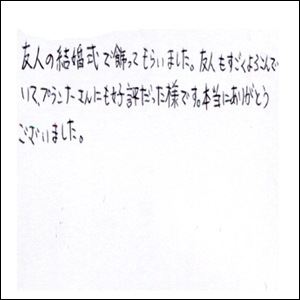 友人の結婚式で飾ってもらいました。友人もすごくよろこんで
いて、プランナーさんにも好評だった様です。本当にありがとう
ございました。